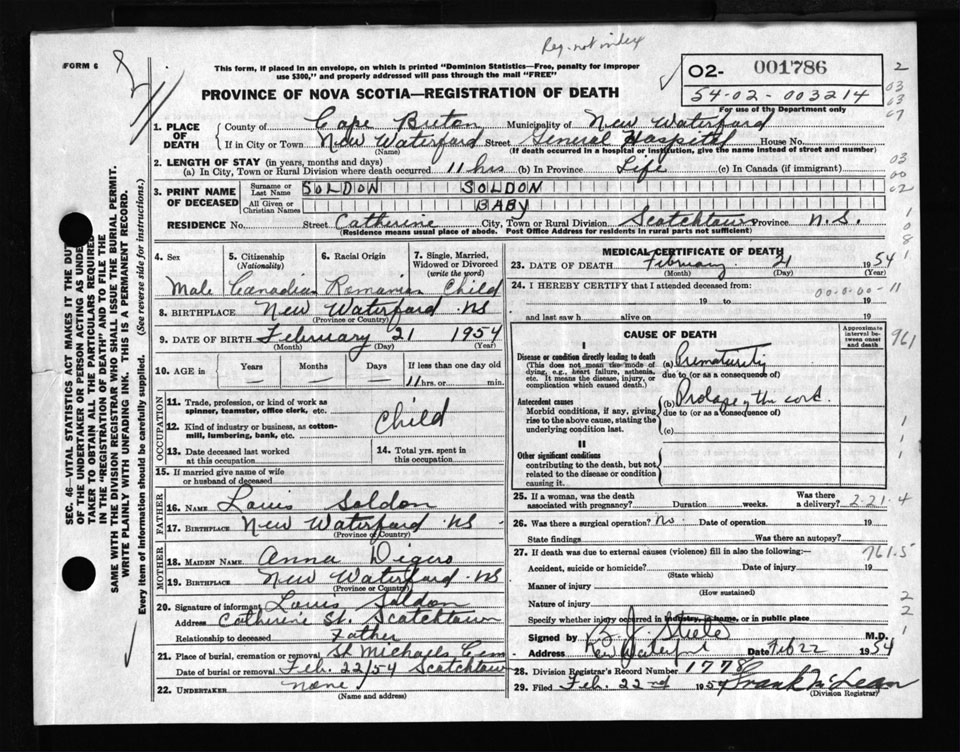 Reg. not index
FORM 6
This form, if placed in an envelope, on which is printed "Dominion Statistics—Free, penalty for improper
use $300," and properly addressed will pass through the mail "FREE"
O2- 001786
54-02-003214
For use of the Department only
PROVINCE OF NOVA SCOTIA—REGISTRATION OF DEATH
1. PLACE OF DEATH
County of Cape Breton Municipality of New Waterford
If in City or Town New Waterford Street General Hospital House No.
(Name) (If death occurred in a hospital or institution, give the name instead of street and number)
2. LENGTH OF STAY (in years, months and days)
(a) In City, Town or Rural Division where death occurred 11 hrs (b) In Province Life (c) In Canada (if immigrant)
3. PRINT NAME OF DECEASED
Surname or Last Name SOLDON SOLDON
All Given or Christian Names BABY
RESIDENCE No. Street Catherine City, Town or Rural Division Scotchtown Province N.S.
(Residence means usual place of abode. Post Office Address for residents in rural parts not sufficient)
4. Sex 5. Citizenship (Nationality) 6. Racial Origin 7. Single, Married, Widowed or Divorced (write the word)
Male Canadian Romanian Child
8. BIRTHPLACE New Waterford NS
(Province or Country)
9. DATE OF BIRTH February 21 1954
(Month) (Day) (Year)
10. AGE in Years Months Days If less than one day old
— — — 11 hrs. or min.
OCCUPATION
11. Trade, profession, or kind of work as spinner, teamster, office clerk, etc.
Child
12. Kind of industry or business, as cotton-mill, lumbering, bank, etc.
13. Date deceased last worked at this occupation
14. Total yrs. spent in this occupation
15. If married give name of wife or husband of deceased
FATHER
16. NAME Louis Soldon
17. BIRTHPLACE New Waterford NS
(Province or Country)
MOTHER
18. MAIDEN NAME Anna
19. BIRTHPLACE New Waterford NS
(Province or Country)
20. Signature of informant Louis Soldon
Address Catherine St. Scotchtown
Relationship to deceased Father
21. Place of burial, cremation or removal St Michaels Cem
Date of burial or removal Feb. 22/54 Scotchtown
22. UNDERTAKER none
(Name and address)
MEDICAL CERTIFICATE OF DEATH
23. DATE OF DEATH February 21 1954
(Month) (Day) (Year)
24. I HEREBY CERTIFY that I attended deceased from:
19 to 19
and last saw h alive on 19
CAUSE OF DEATH
Approximate interval between onset and death
I
Disease or condition directly leading to death
(This does not mean the mode of dying, e.g., heart failure, asthenia, etc. It means the disease, injury, or complication which caused death.)
(a) Prematurity
due to (or as a consequence of)
Antecedent causes
Morbid conditions, if any, giving rise to the above cause, stating the underlying condition last.
(b) Prolapse of the cord.
due to (or as a consequence of)
(c)
II
Other significant conditions
contributing to the death, but not related to the disease or condition causing it.
25. If a woman, was the death associated with pregnancy? Duration weeks. Was there a delivery? 2-21-4
26. Was there a surgical operation? No. Date of operation 19
State findings Was there an autopsy?
27. If death was due to external causes (violence) fill in also the following:— 761.5
Accident, suicide or homicide? Date of injury 19
(State which)
Manner of injury
(How sustained)
Nature of injury
Specify whether injury occurred in industry, in home, or in public place
Signed by B. J. Steele M.D.
Address New Waterford Date Feb 22 1954
28. Division Registrar's Record Number 1778
29. Filed Feb. 22nd 1954 Frank McLean
(Division Registrar)
SEC. 46—VITAL STATISTICS ACT MAKES IT THE DUTY
OF THE UNDERTAKER OR PERSON ACTING AS UNDER
TAKER TO OBTAIN ALL THE PARTICULARS REQUIRED
IN THE "REGISTRATION OF DEATH" AND TO FILE THE
SAME WITH THE DIVISION REGISTRAR WHO SHALL ISSUE THE BURIAL PERMIT.
WRITE PLAINLY WITH UNFADING INK. THIS IS A PERMANENT RECORD.
Every item of information should be carefully supplied. (See reverse side for instructions.)